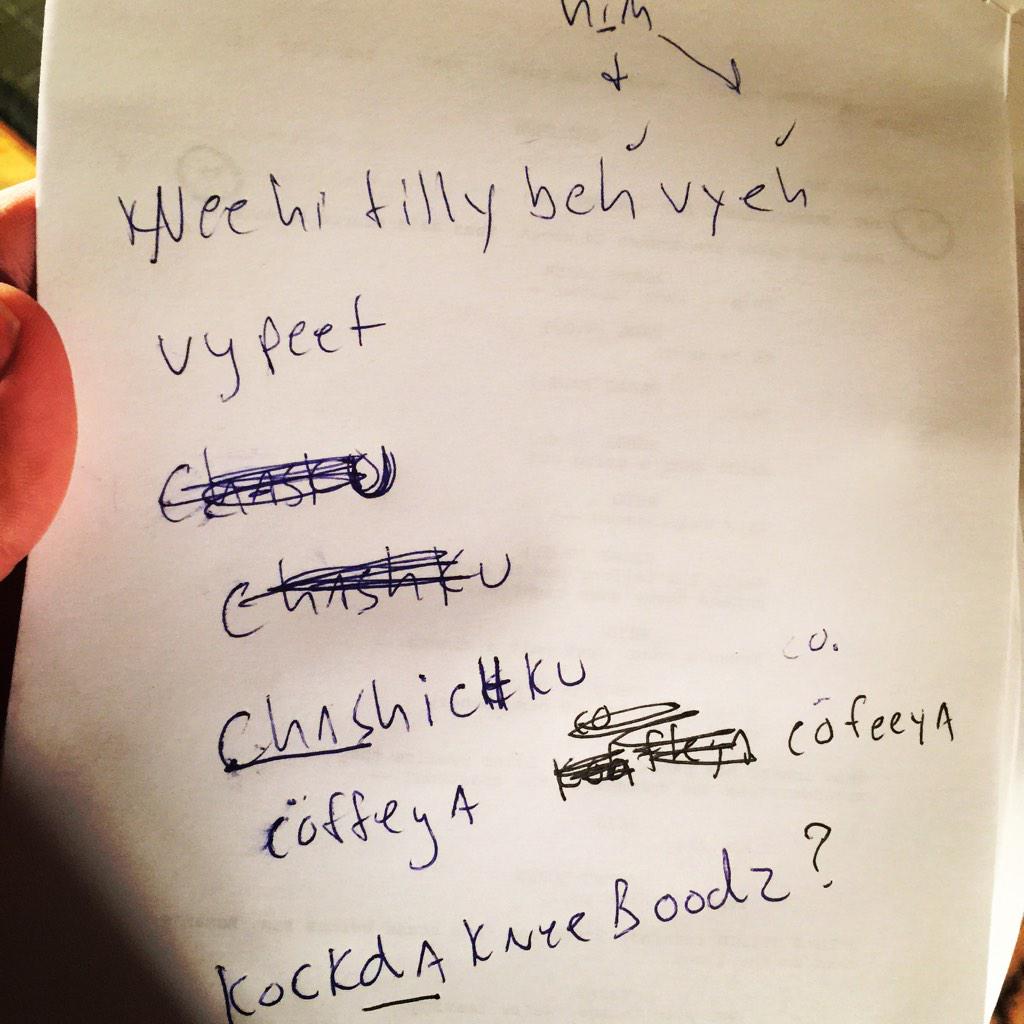 him
KNee hi tilly beh vyeh
vy peet
Chasku
Chashku
ChAshicHku
co.
cöffeyA co cöfeeyA
KocKdA Knyee Boodz?